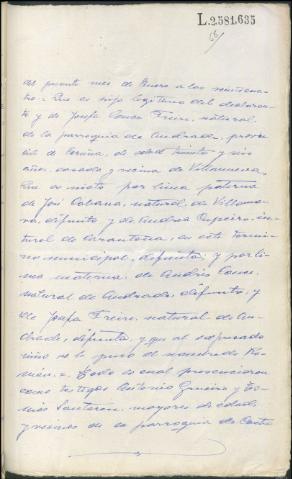 L.2.581.635
del presente mes de Enero a las veinticua-
tro. Que es hijo legitimo del declaran-
te y de Josefa Couso Freire, natural
de la parroquia de Andrade, provin-
cia de Coruña, de edad treinta y seis
años, casada y vecina de Villanueva.
Que es nieto por linea paterna
de José Cabana, natural de Villanue-
va, difunto y de Andrea Oujeiro, na-
tural de Carantoña, en este termi-
no municipal, difunta; y por li-
nea materna, de Andrés Couso,
natural de Andrade, difunto, y
de Josefa Freire, natural de An-
drade, difunta, y que al expresado
niño se le puso el nombre de Ra-
món. Todo lo cual presenciaron
como testigos Antonio y To-
más Santeron, mayores de edad
y vecinos de la parroquia de